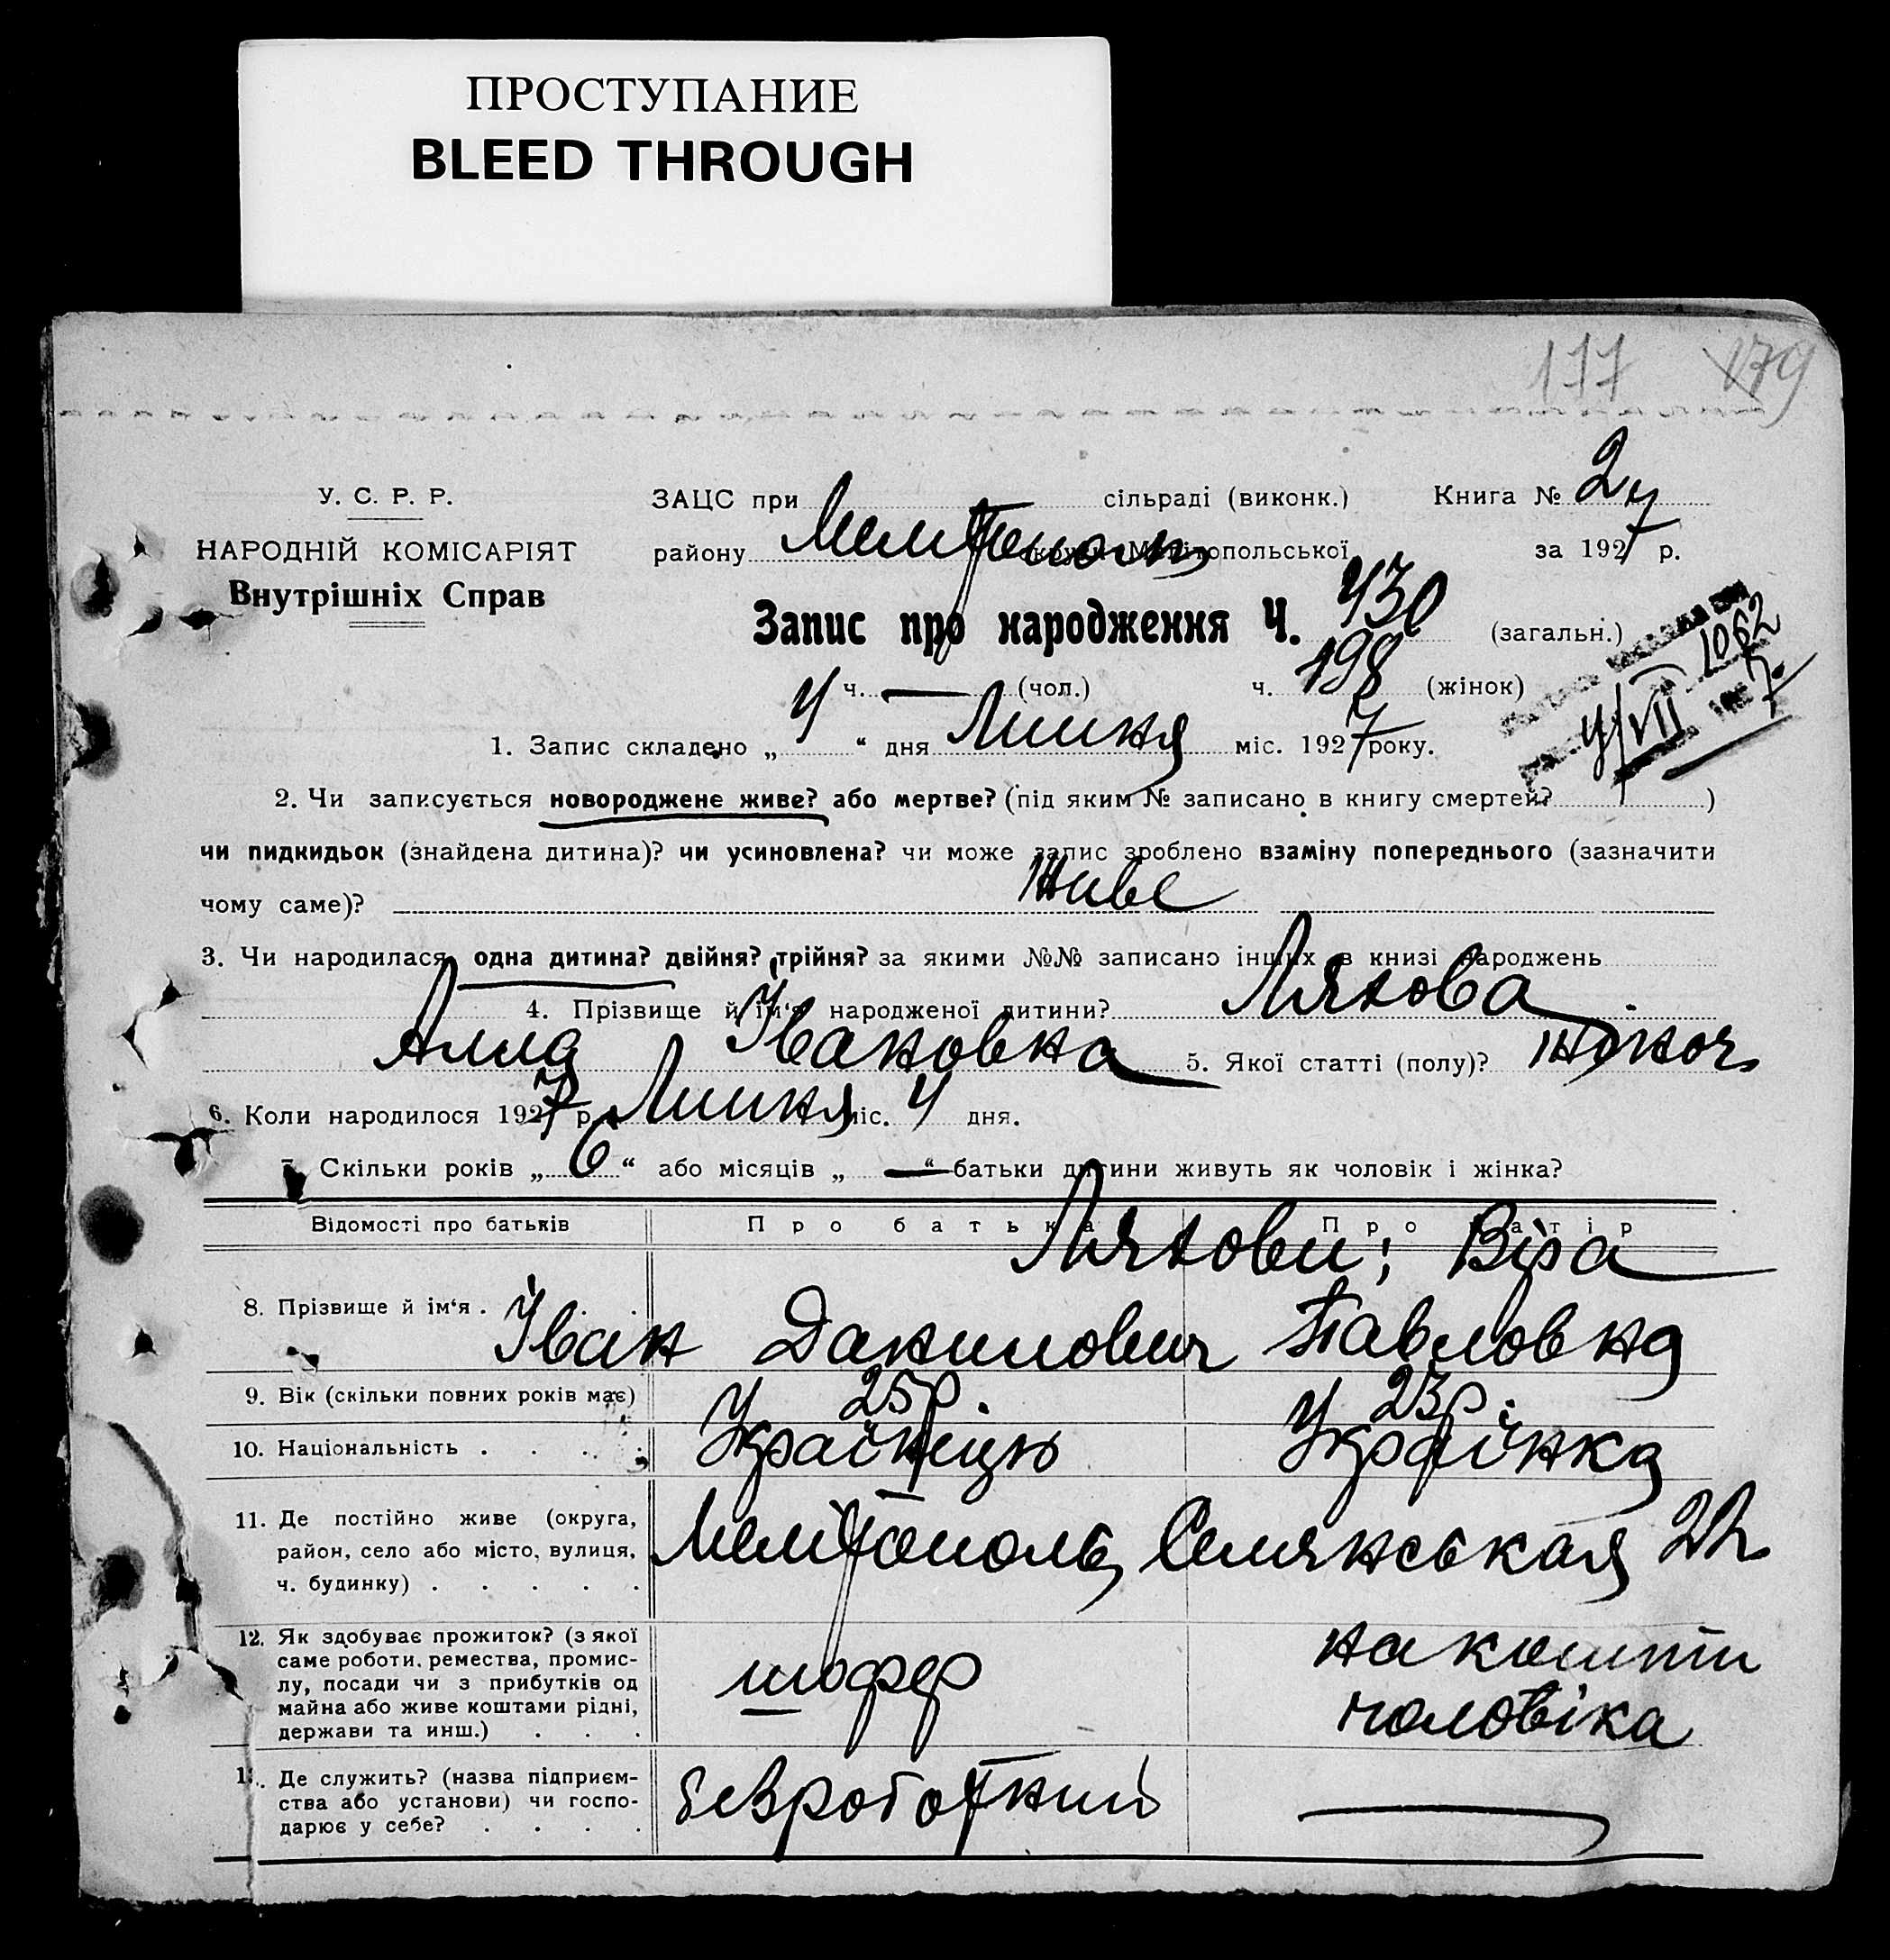 ПРОСТУПАНИЕ
BLEED THROUGH
177 179
У. С. Р. Р.
НАРОДНІЙ КОМІСАРІЯТ
Внутрішніх Справ
ЗАЦС при сільраді (виконк.) Книга № 2
району Мелітополь округи Мелітопольської за 1927 р.
Запис про народження Ч. 430 (загальн.)
ч. — (чол.) ч. 198 (жінок)
1062
4/VII 1927
1. Запис складено „ 4 “ дня Липня міс. 1927 року.
2. Чи записується новороджене живе? або мертве? (під яким № записано в книгу смертей? )
чи пидкидьок (знайдена дитина)? чи усиновлена? чи може запис зроблено взаміну попереднього (зазначити
чому саме)? Живе
3. Чи народилася одна дитина? двійня? трійня? за якими №№ записано інших в книзі народжень
4. Прізвище й ім'я народженої дитини? Ляхова
Алла Івановна 5. Якої статті (полу)? жіноч.
6. Коли народилося 1927 р. Липня міс. 4 дня.
7. Скільки років „ 6 “ або місяців „ — “ батьки дитини живуть як чоловік і жінка?
Відомості про батьків Про батька Про матір
Ляхови; Віра
8. Прізвище й ім‘я . . . . Іван Данилович Павловна
9. Вік (скільки повних років має) 25 р. 23 р.
10. Національність . . . . Українець Українка
11. Де постійно живе (округа,
район, село або місто, вулиця,
ч. будинку) . . . . . Мелітополь, 
12. Як здобуває прожиток? (з якої
саме роботи, ремества, промис-
лу, посади чи з прибутків од
майна або живе коштами рідні,
держави та инш.) . . . шофер на кошти
чоловіка
13. Де служить? (назва підприєм-
ства або установи) чи госпо-
дарює у себе? . . . . безработний —